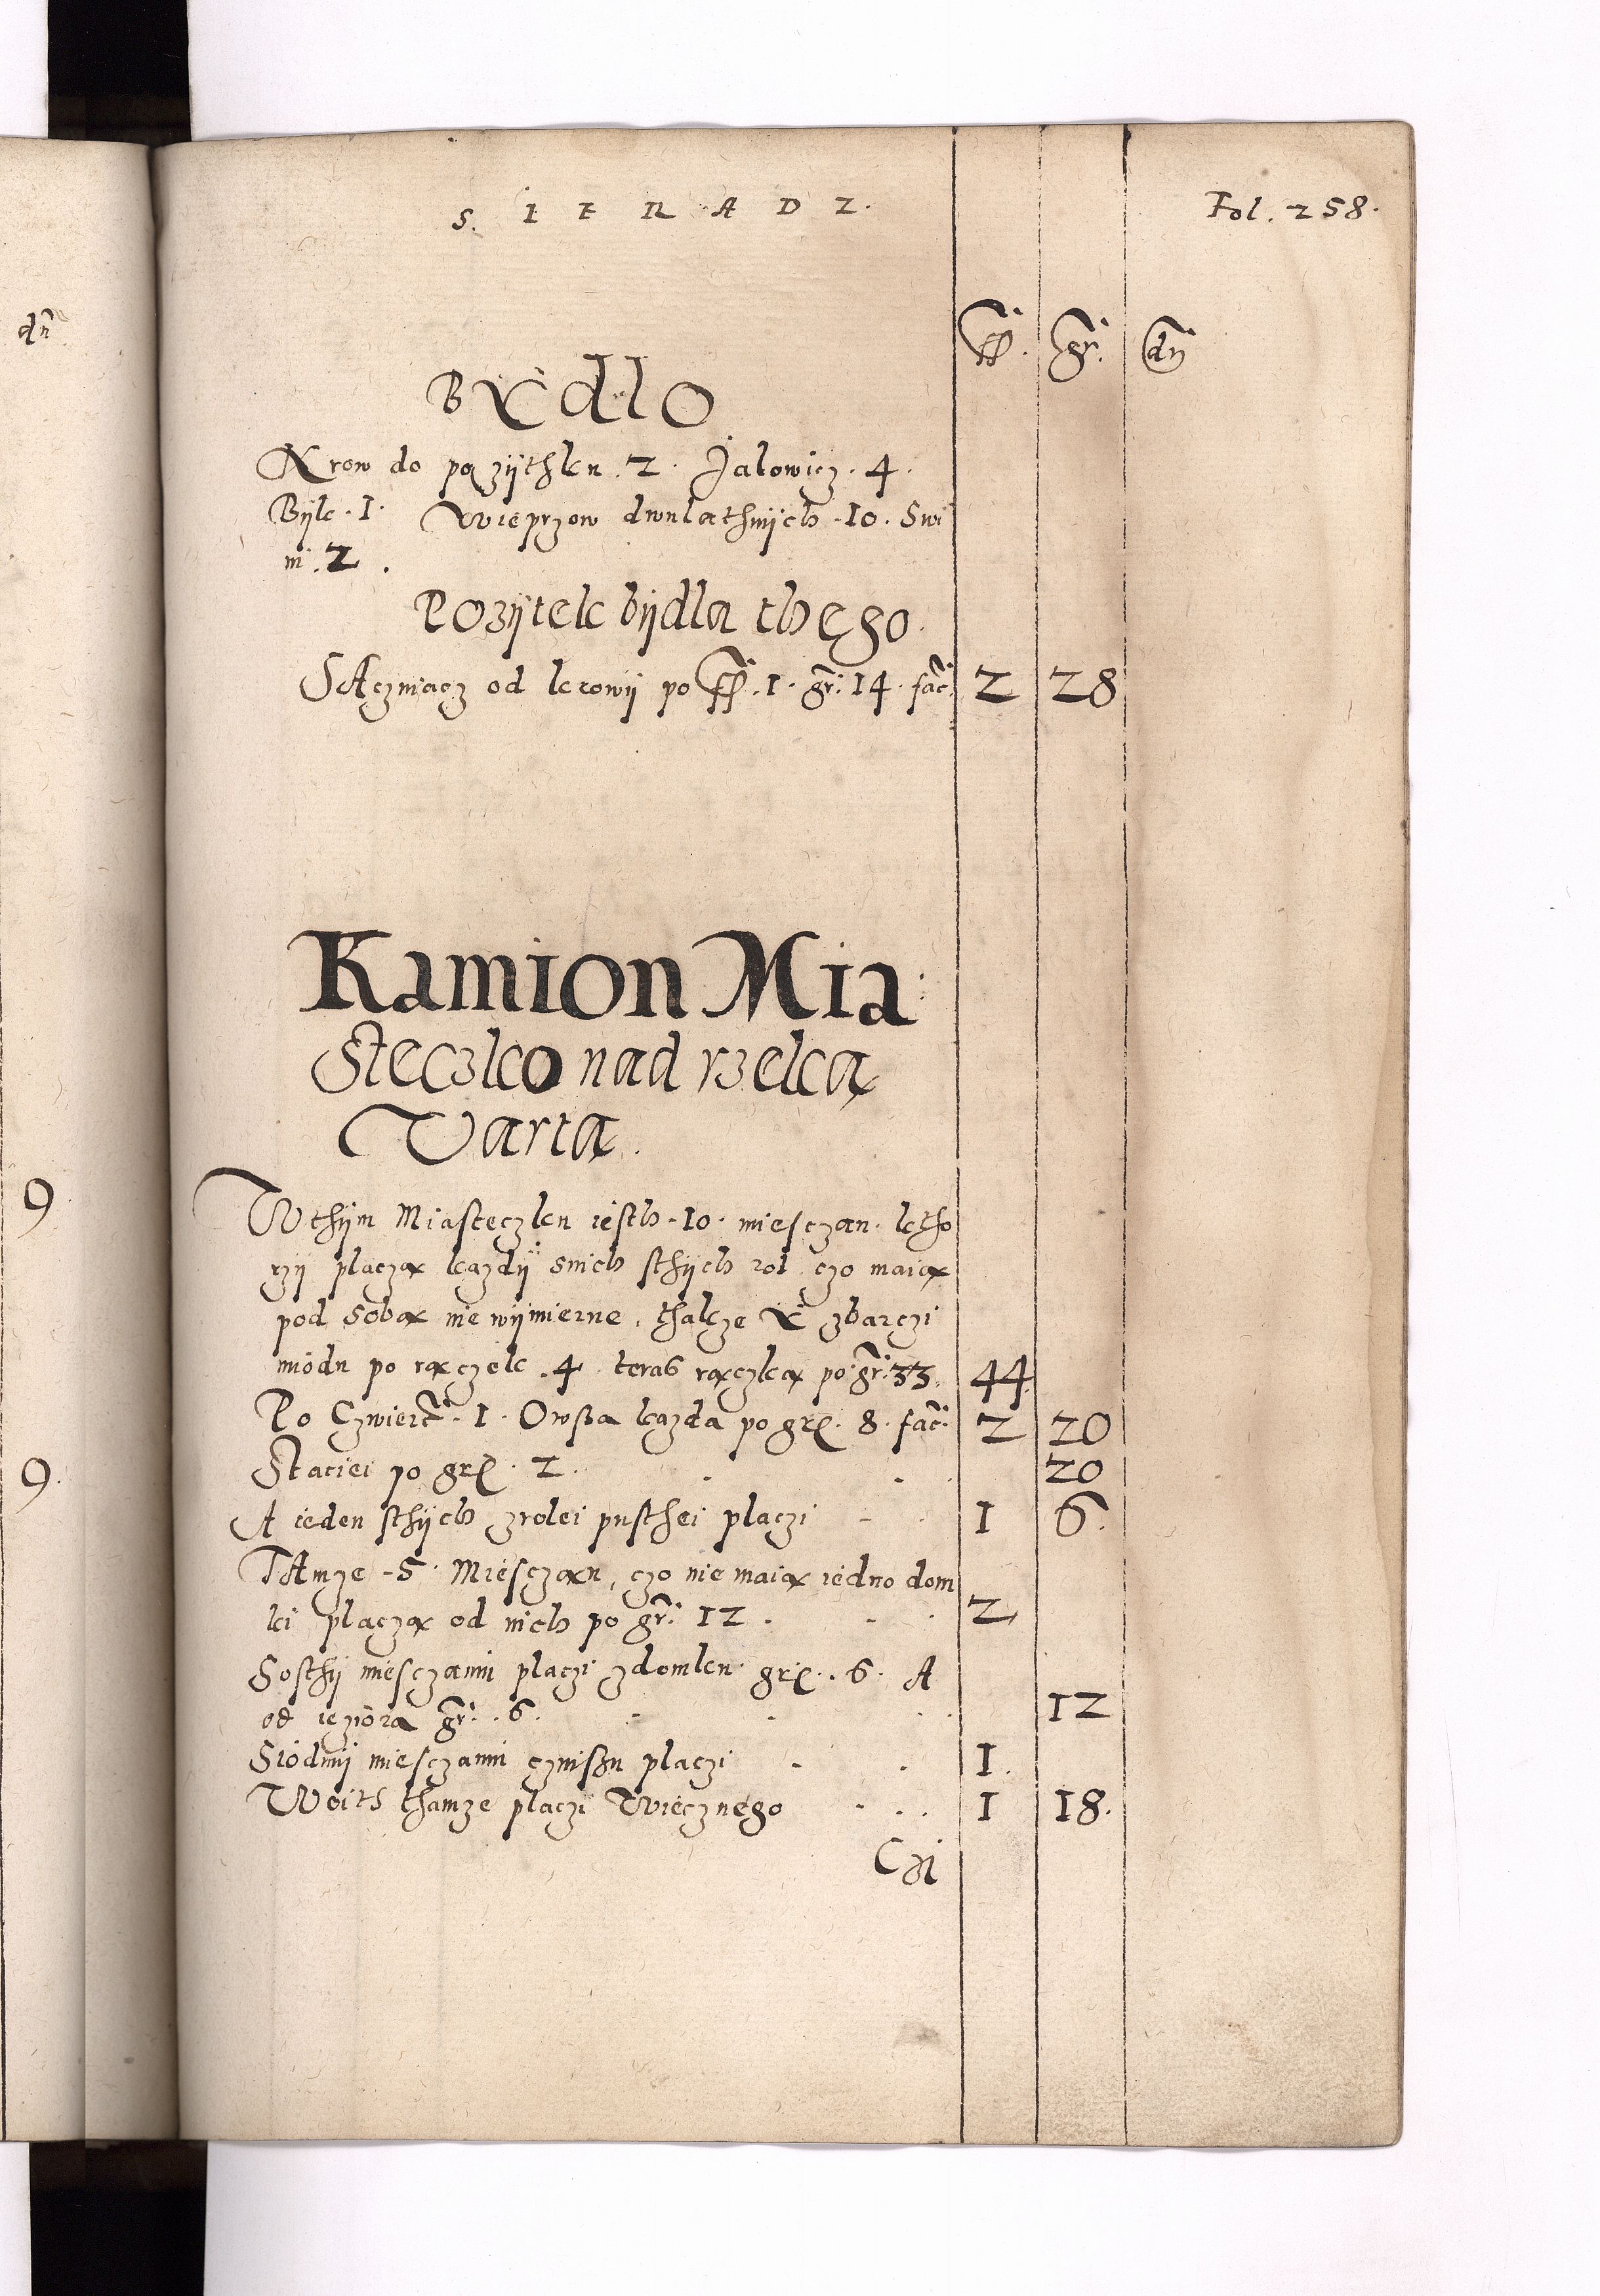 S. I E R A D Z.
Fol. 258.
dn
ff. gr. dn
BYdlo
Krow do pozÿthku .2. Jalowicz .4.
Bÿk .1. Wieprzow dwulathnÿch .10. Swi
ni .2.
Pozÿtek bÿdla thego.
SAczuiącz od krowÿ po ff .1. gr. 14. fac. 2 28
Kamion Mia
steczko nad rzeką
Vartą.
Wthÿm Miasteczku iesth .10. miesczan. ktho
rzÿ placzą kazdÿ snich sthÿch rol czo maią
pod sobą nie wÿmierne, thakze Y zbarczi
miodu po rączek .4. teras rączką po gr. 33. 44
Po Czwiert. 1. Owsa kazda po gr. 8. fac. 2 20
Staciei po gr. 2. 20
A ieden sthÿch zrolei pusthei placzi 1 6.
TAmze .5. Miesczan, czo nie maią iedno dom
ki placzą od nich po gr. 12. 2
Sosthÿ miesczanin placzi zdomku gr. 6. A
od ieziora gr. 6. 12
Siodmÿ miesczanin czinszu placzi 1.
Woith thamze placzi Wiecznego 1 18.
9.
9.